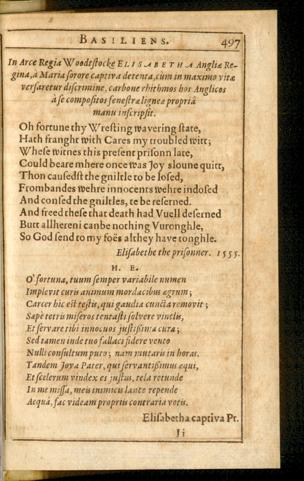 BASILIENS. 497
In Arce Regia Woodstocke ELISABETHA Angliæ Re-
gina, à Maria sorore captiva detenta, cùm in maximo vitæ
versaretur discrimine, carbone rhithmos hos Anglicos
à se compositos fenestræ ligneæ propriâ
manu inscripsit.
Oh fortune thy Wresting wavering state,
Hath franght with Cares my troubled witt;
Whese witnes this present prisonn late,
Could beare mhere once was Joy sloune quitt,
Thon causedst the gniltle to be losed,
Frombandes wehre innocents wehre indosed
And consed the gniltles, te be reserned.
And freed these that death had Vuell deserned
Butt allhereni canbe nothing Vuronghle,
So God send to my foës althey have tonghle.
Elisabethe the prisonner. 1555.
H. E.
O fortuna, tuum semper variabile numen
Implevit curis animum mordacibus ægrum;
Carcer hic est testis, qui gaudia cuncta removit;
Sæpè terris miseros tentasti solvere vinclis,
Et servare tibi innocuos justissima cura;
Sed tamen inde tuo fallaci sidere vento
Nulli consultum puto; nam mutaris in horas.
Tandem Jova Pater, qui servantissimus æqui,
Et scelerum vindex es justus, tela retunde
In me missa, meis inimicis laute repende
Æqua, fac videam propriis contraria votis.
Elisabetha captiva Pr.
Ii